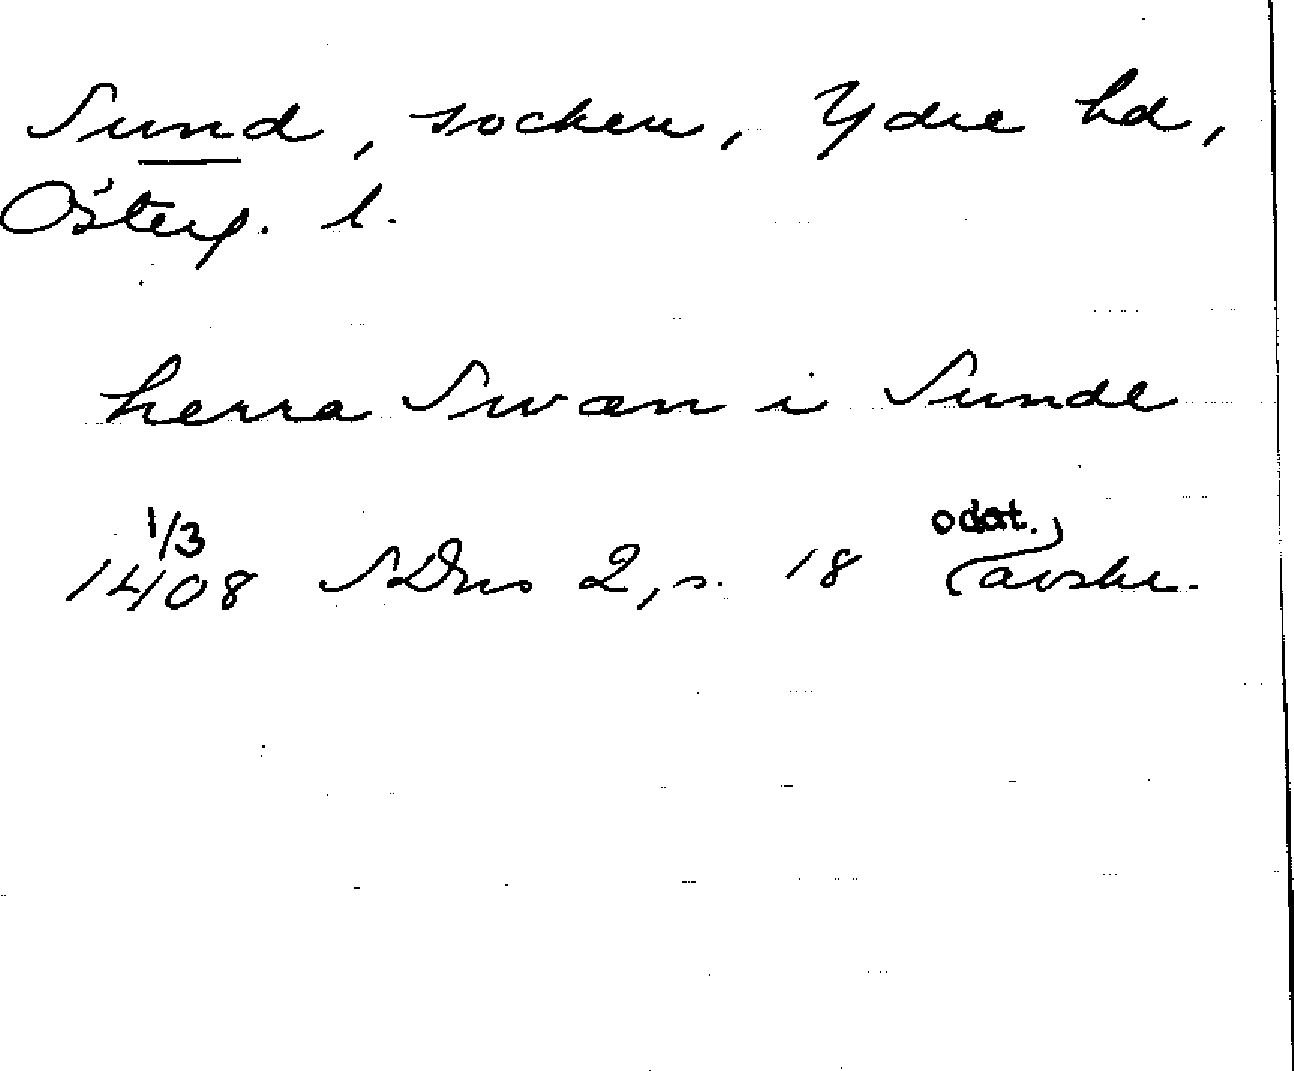 Sund, socken, Ydre hd,
Österg. l.
herra Swæn i Sunde
1/3
1408 SDns 2, s. 18 (odat. avskr.